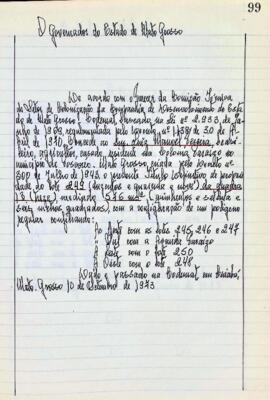 99
O Governador do Estado de Mato Grosso
De acordo com o Parecer da Comissão Técnica
do Setor de Colonização da Companhia de Desenvolvimento do Esta
do de Mato Grosso: Codemat, baseada na Lei nº 2.933, de Ja
neiro de 1969, regulamentada pelo Decreto nº 1.138 de 30 de A
bril de 1970, Concede ao Sr. Luiz Manoel
brasileiro, casado residente na Colonia
município de Mato Grosso, criada pelo Decreto nº
300 de Julho de 1943, o presente Título definitivo de proprie
dade do lote 249 (duzentos e quarenta e nove) da quadra
medindo 576 m² (quinhentos e setenta e
seis metros quadrados), com a configuração de um polígono
regular confinando:
Ao Norte com os lotes 245, 246 e 247
Ao Sul com a
A Leste com o lote 250
A Oeste com o lote 248
Dado e passado na Codemat, em Cuiabá,
Mato Grosso 10 de de 1973